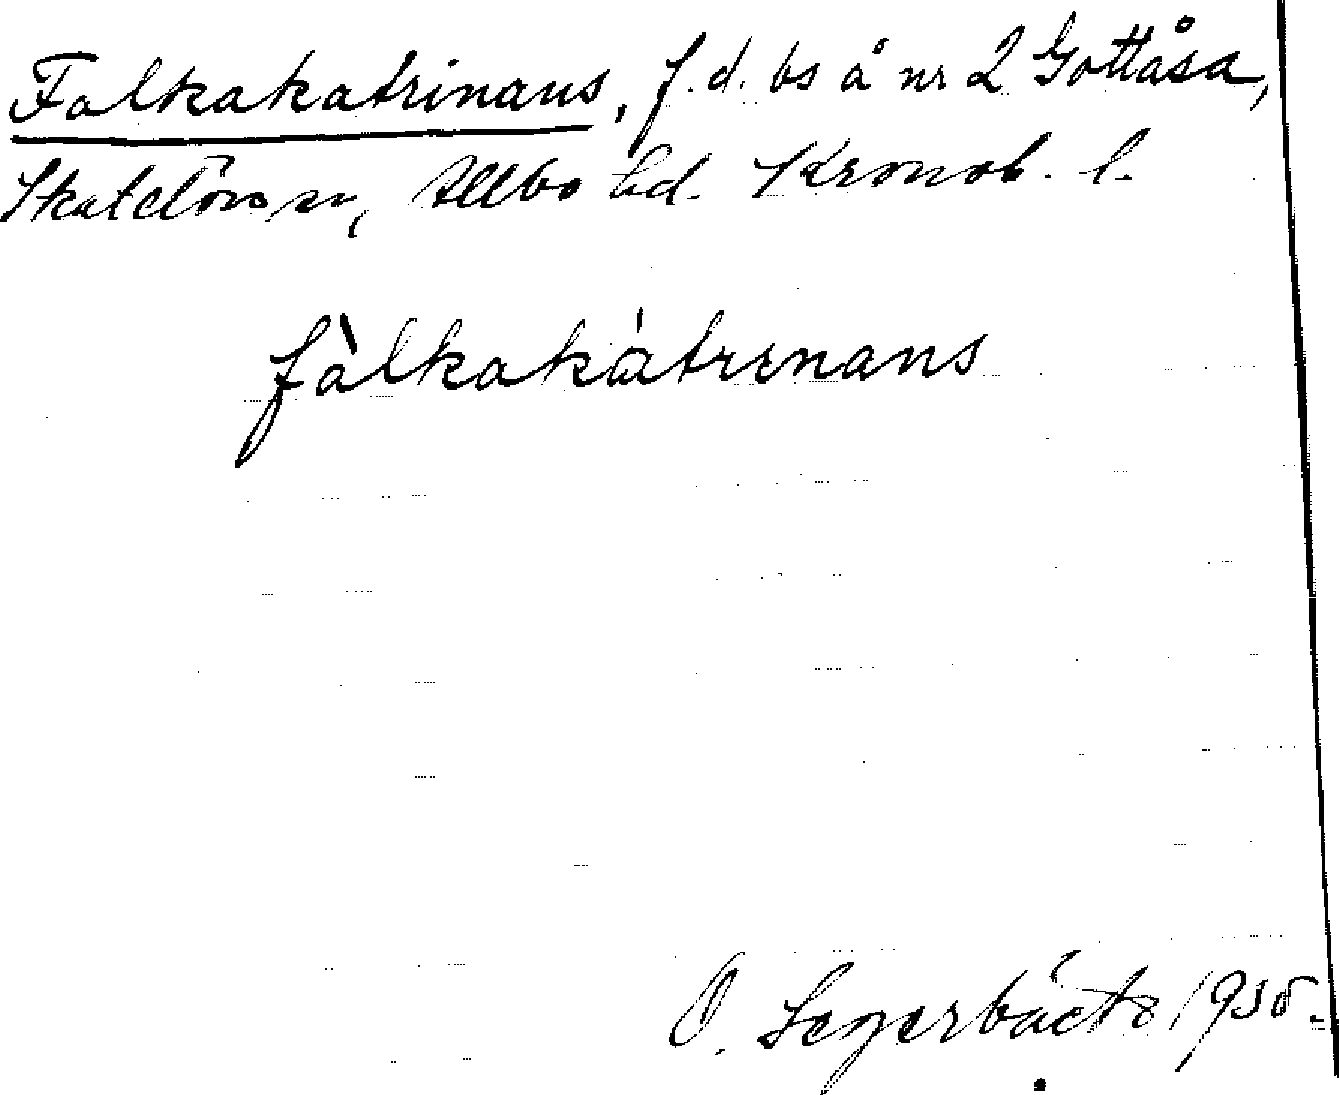 Falkakatrinans, f.d. bs å nr 2 Gottåsa,
Skatelövs sn, Allbo hd. Kronob. l.
fàlkakátrinans
O. Segerbäck 1935.